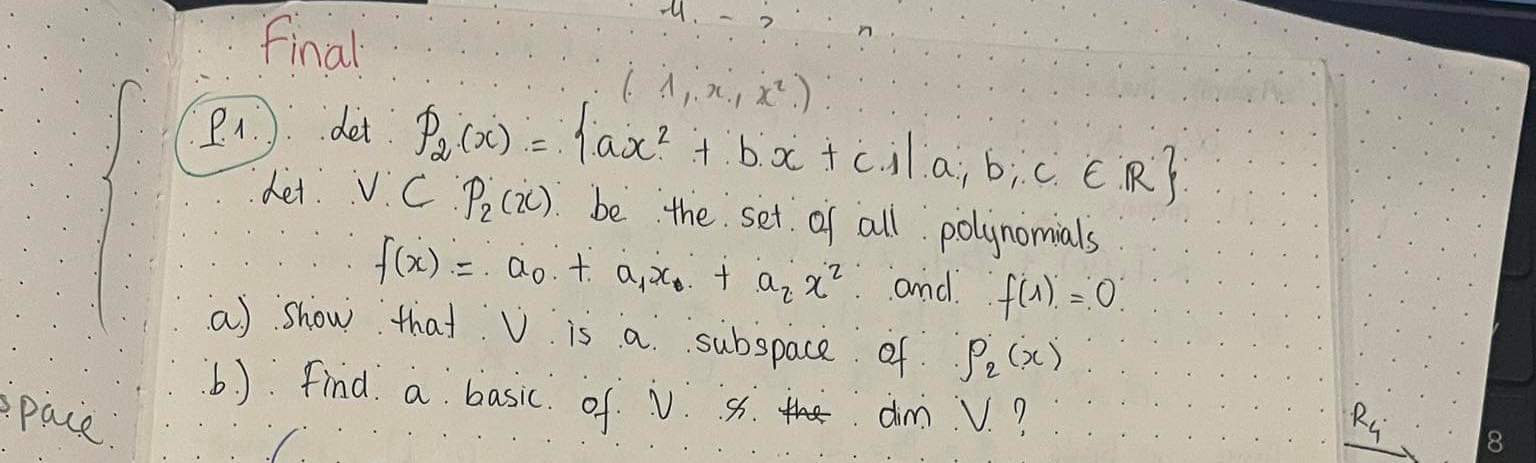 Final
(1, x, x²)
P1. Let P₂(x) = {ax² + bx + c.1 | a, b, c ∈ ℝ}
Let V ⊂ P₂(x) be the set of all polynomials
f(x) = a₀ + a₁x + a₂x² and f(1) = 0
a) Show that V is a subspace of P₂(x)
b) Find a basic of V & the dim V?
space
R₄
8